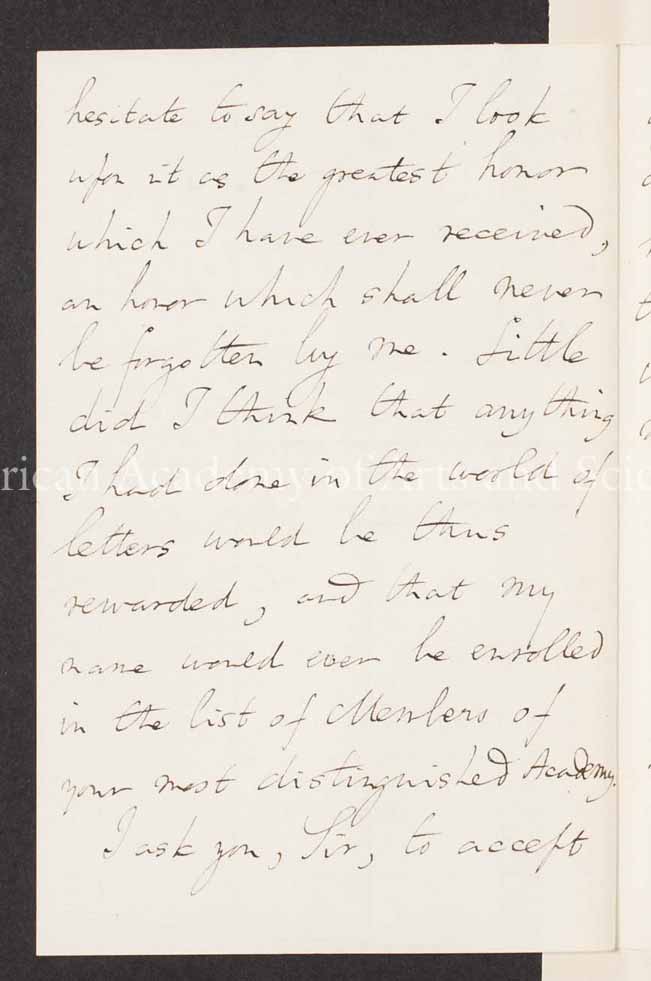 hesitate to say that I look
upon it as the greatest honor
which I have ever received,
an honor which shall never
be forgotten by me. Little
did I think that anything
I had done in the world of
rican Academy of Arts and Scie
letters would be thus
rewarded, and that my
name would ever be enrolled
in the list of Members of
your most distinguished Academy.
I ask you, Sir, to accept